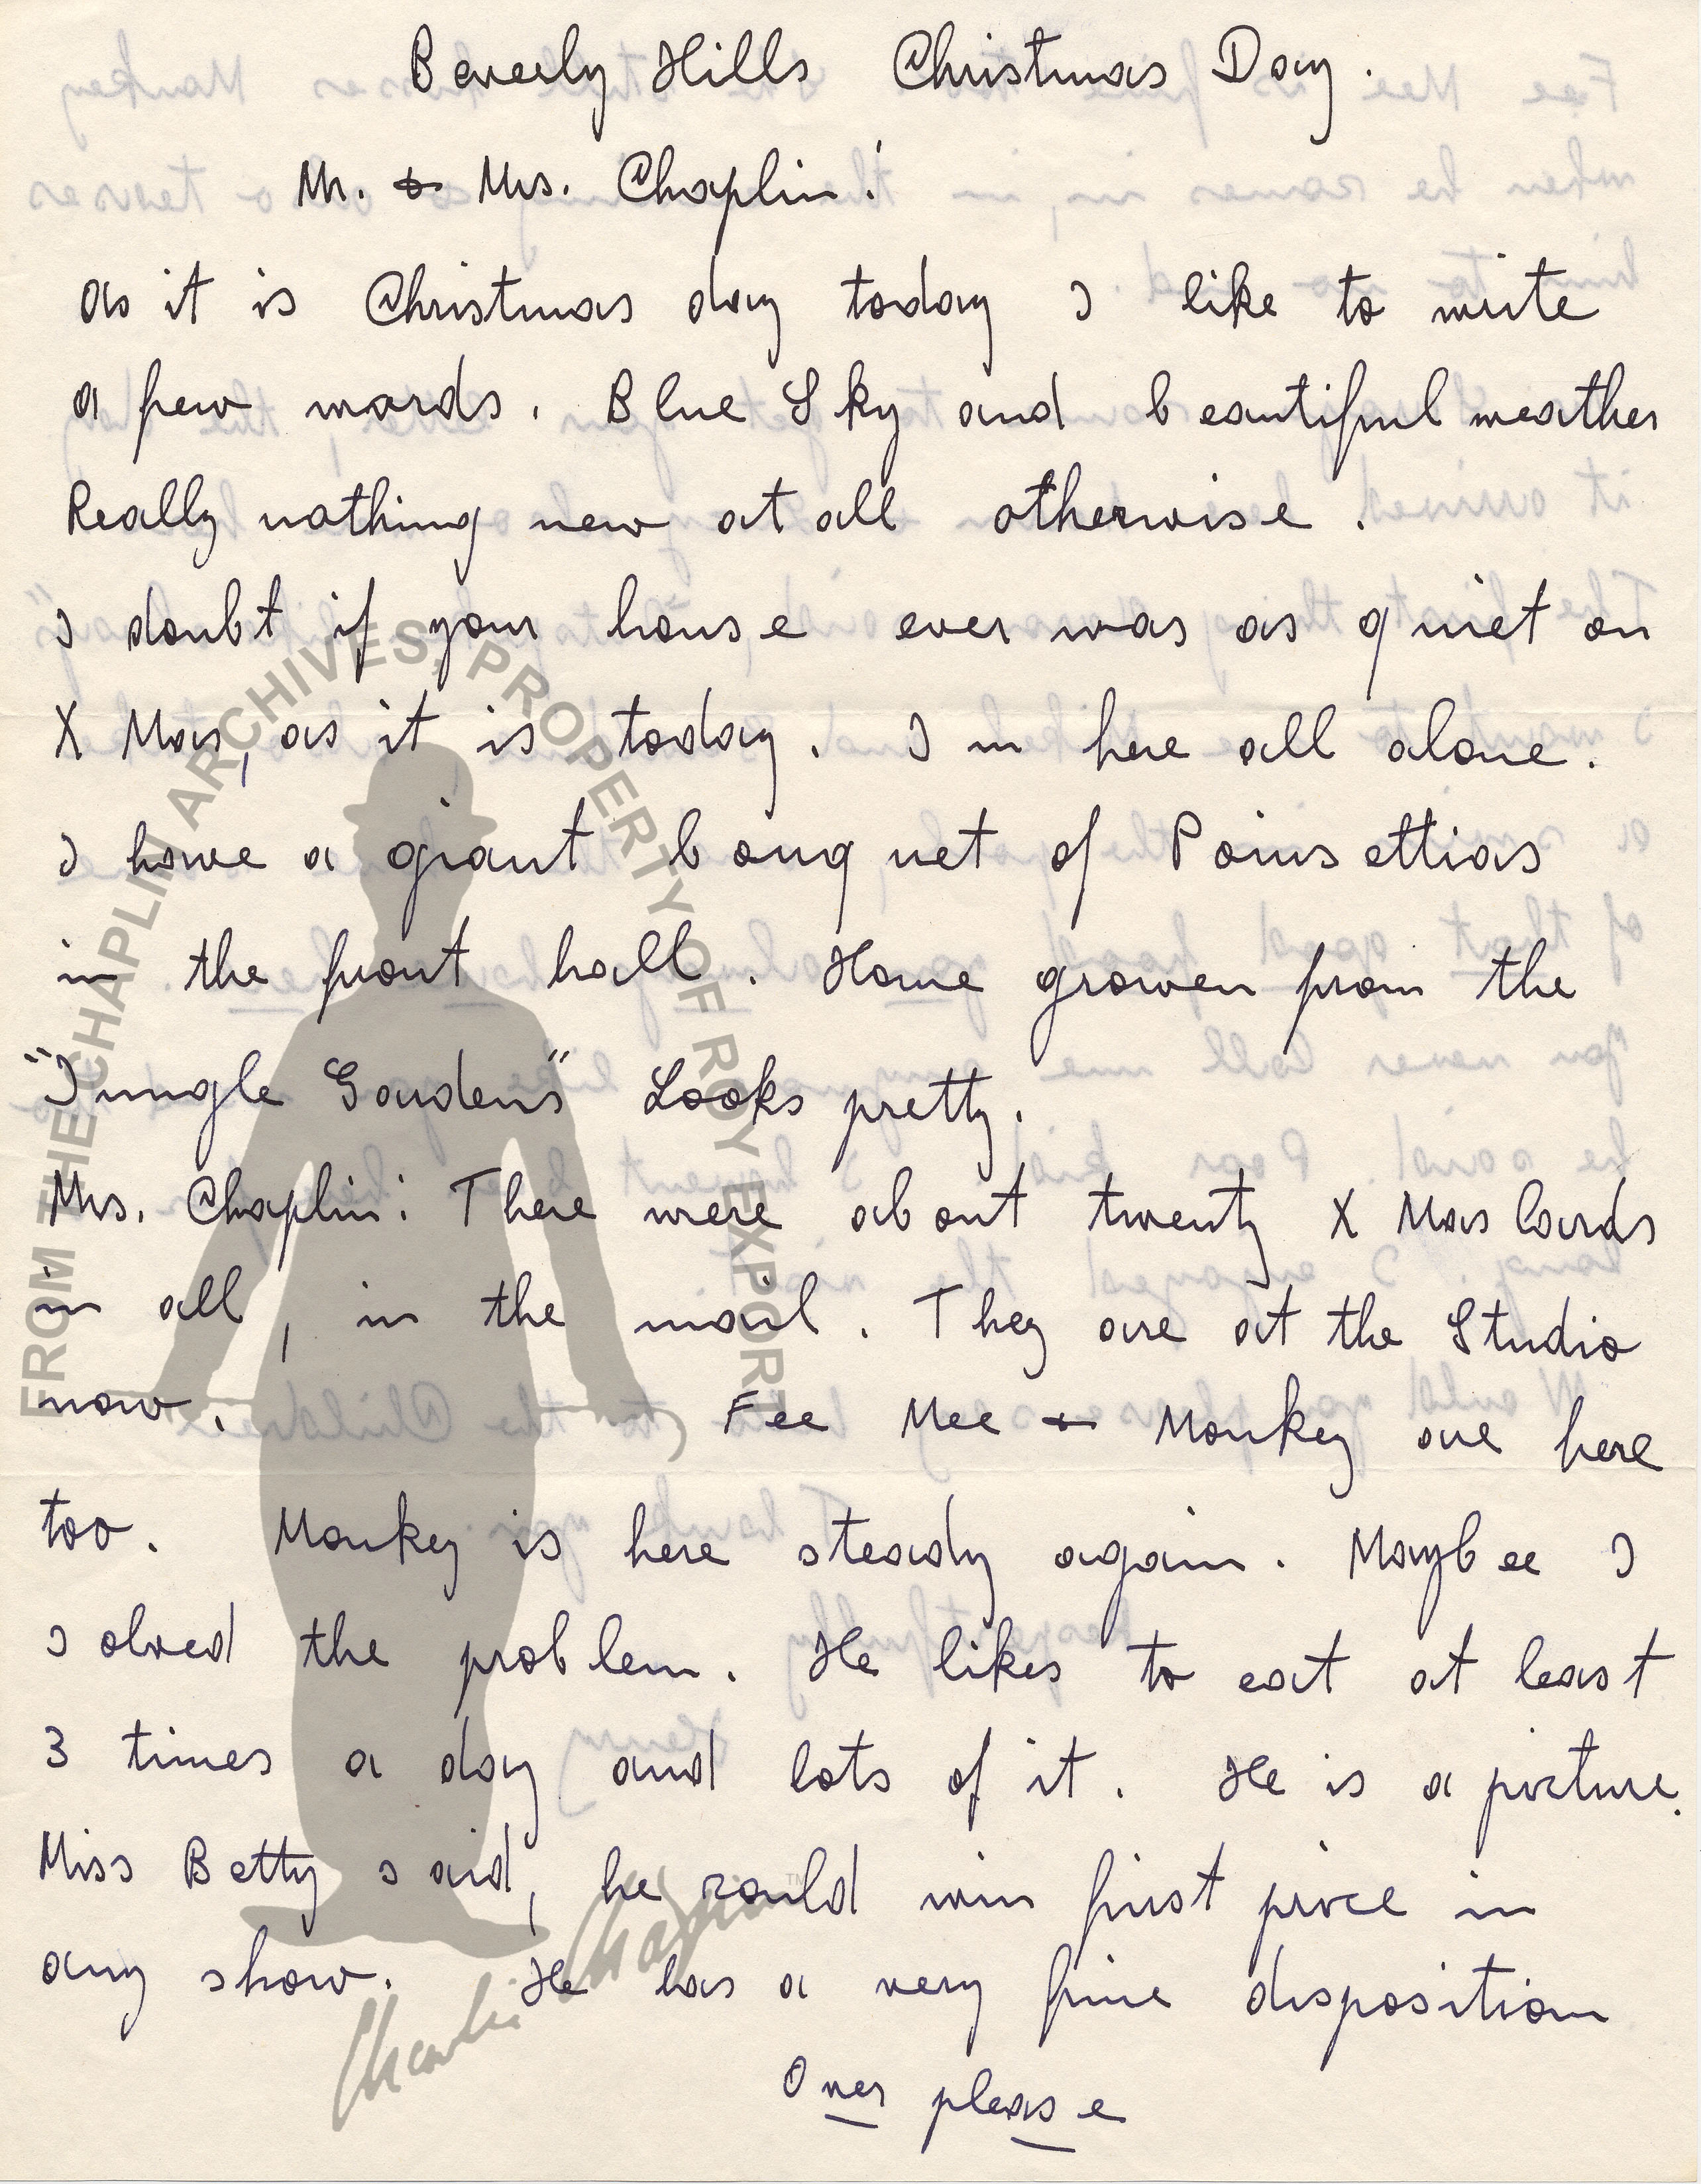 Beverly Hills Christmas Day.
Mr. & Mrs. Chaplin!
as it is Christmas day today I like to write
a few words. Blue Sky and beautiful weather
Really nothing new at all otherwise.
I doubt if your house ever was as quiet on
X Mas, as it is today. I m here all alone.
I have a giant bouquet of Poinsettias
in the front hall. Home growen from the
"Jungle Gardens" Looks pretty.
Mrs. Chaplin: There were about twenty X Mas Cards
in all, in the mail. They are at the Studio
now. Fee Mee & Monkey are here
too. Monkey is here steady again. Maybee I
solved the problem. He likes to eat at least
3 times a day and lots of it. He is a picture.
Miss Betty said, he could win first price in
any show. He has a very fine disposition
Over please
FROM THE CHAPLIN ARCHIVES, PROPERTY OF ROY EXPORT
Charlie Chaplin
TM